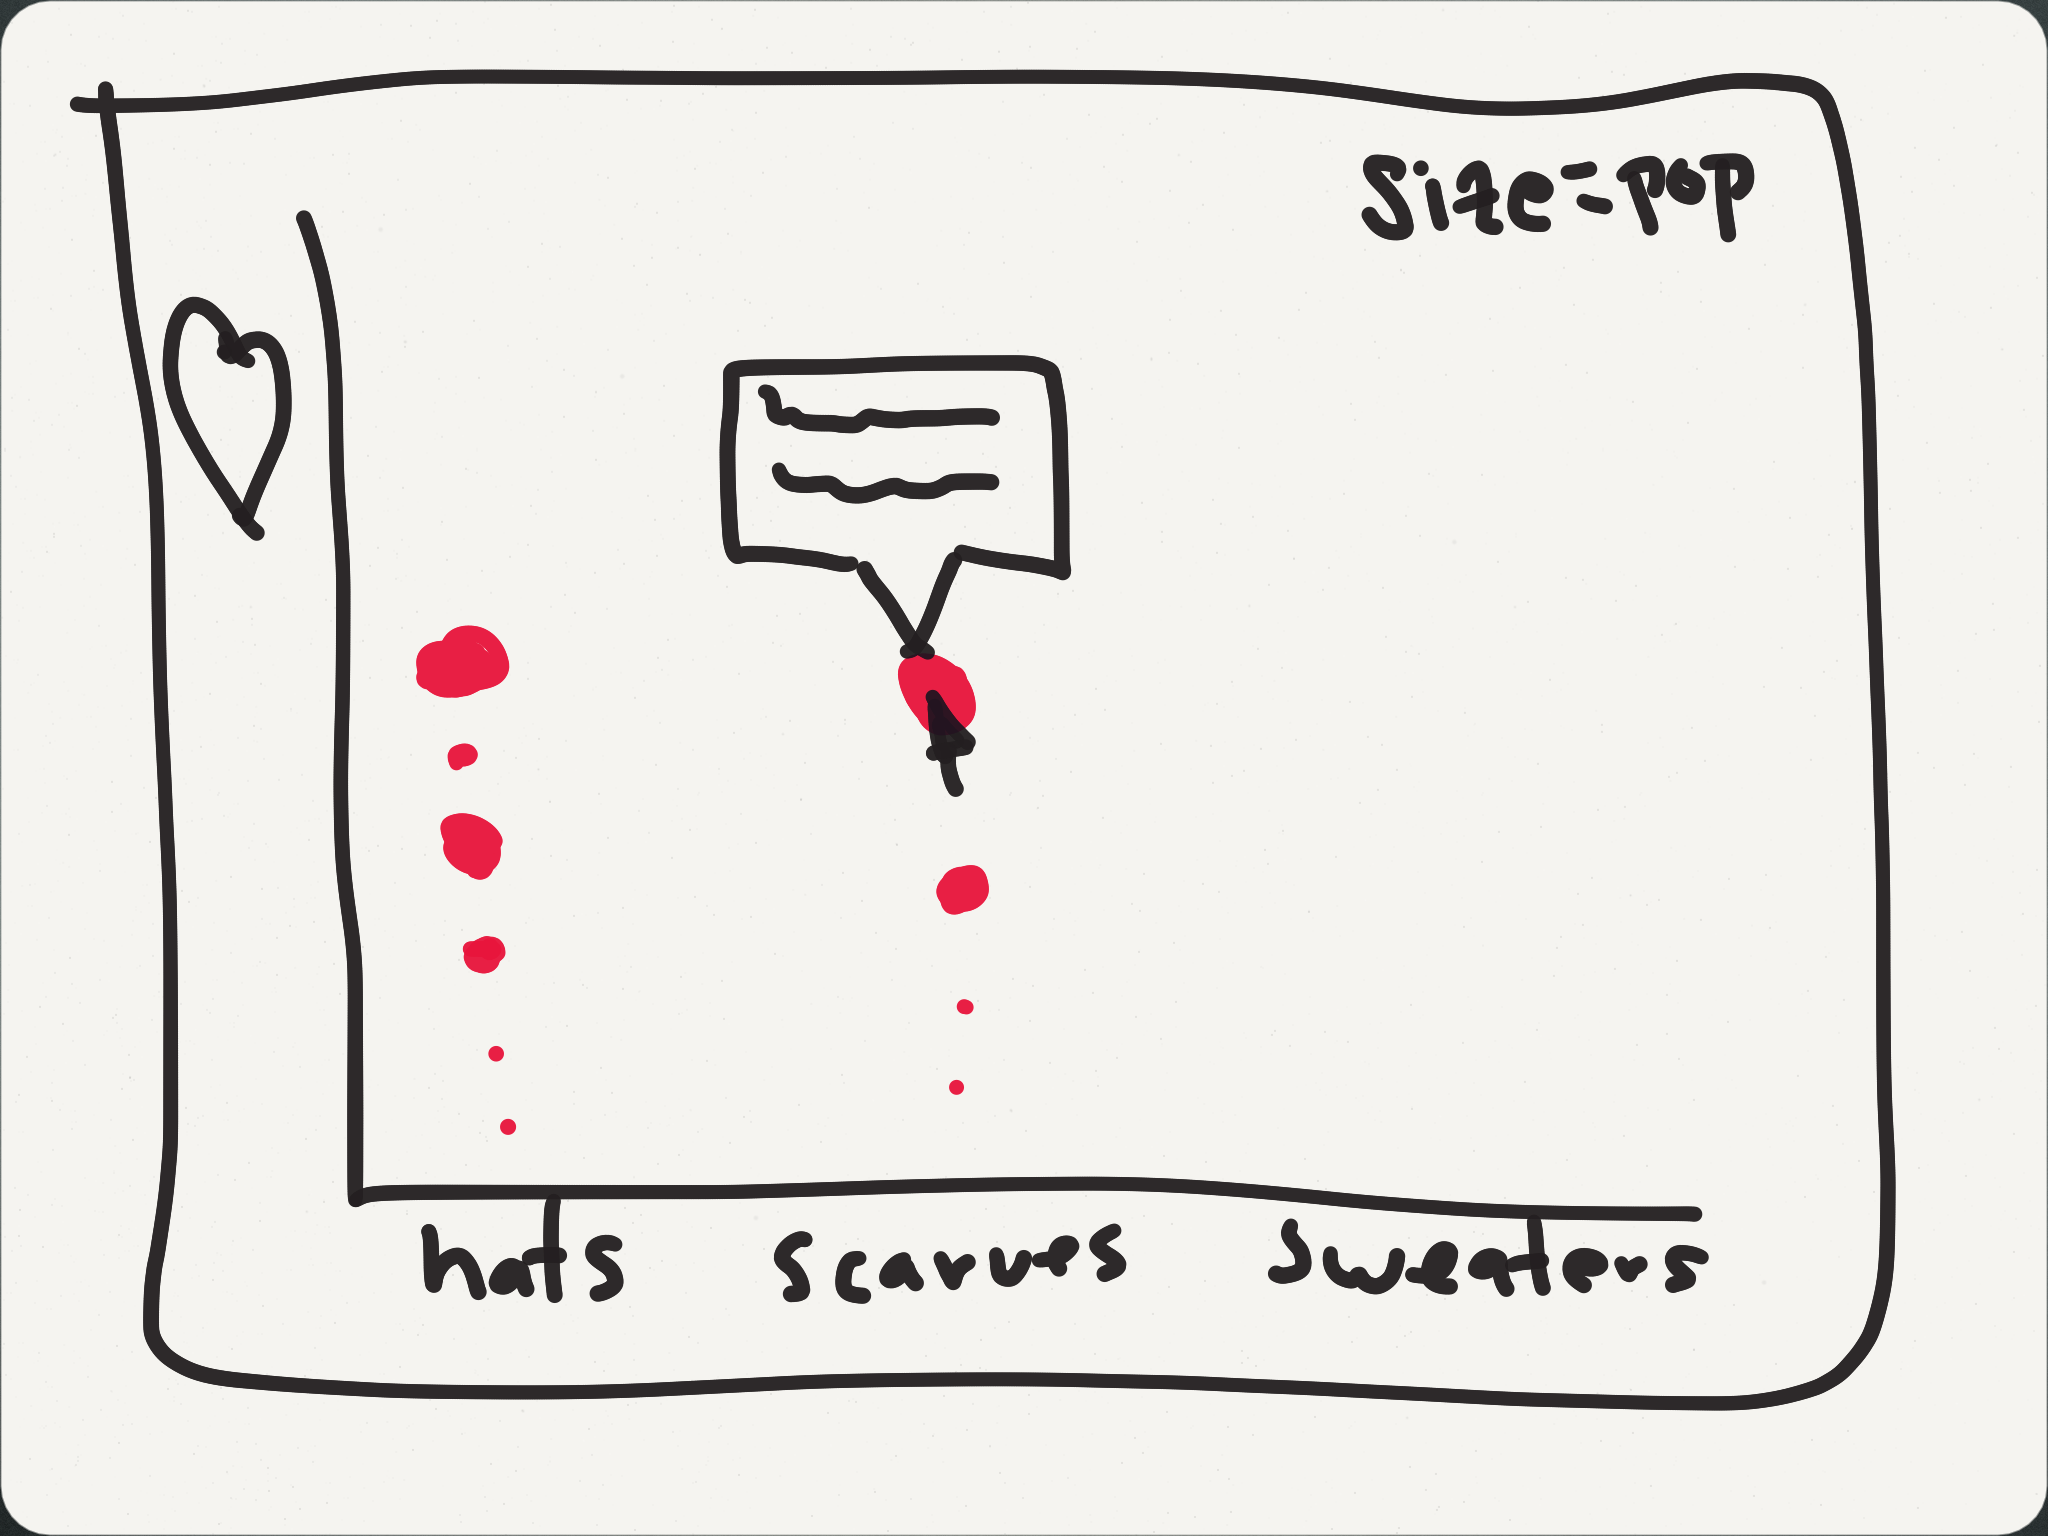 Size=pop
hats scarves sweaters